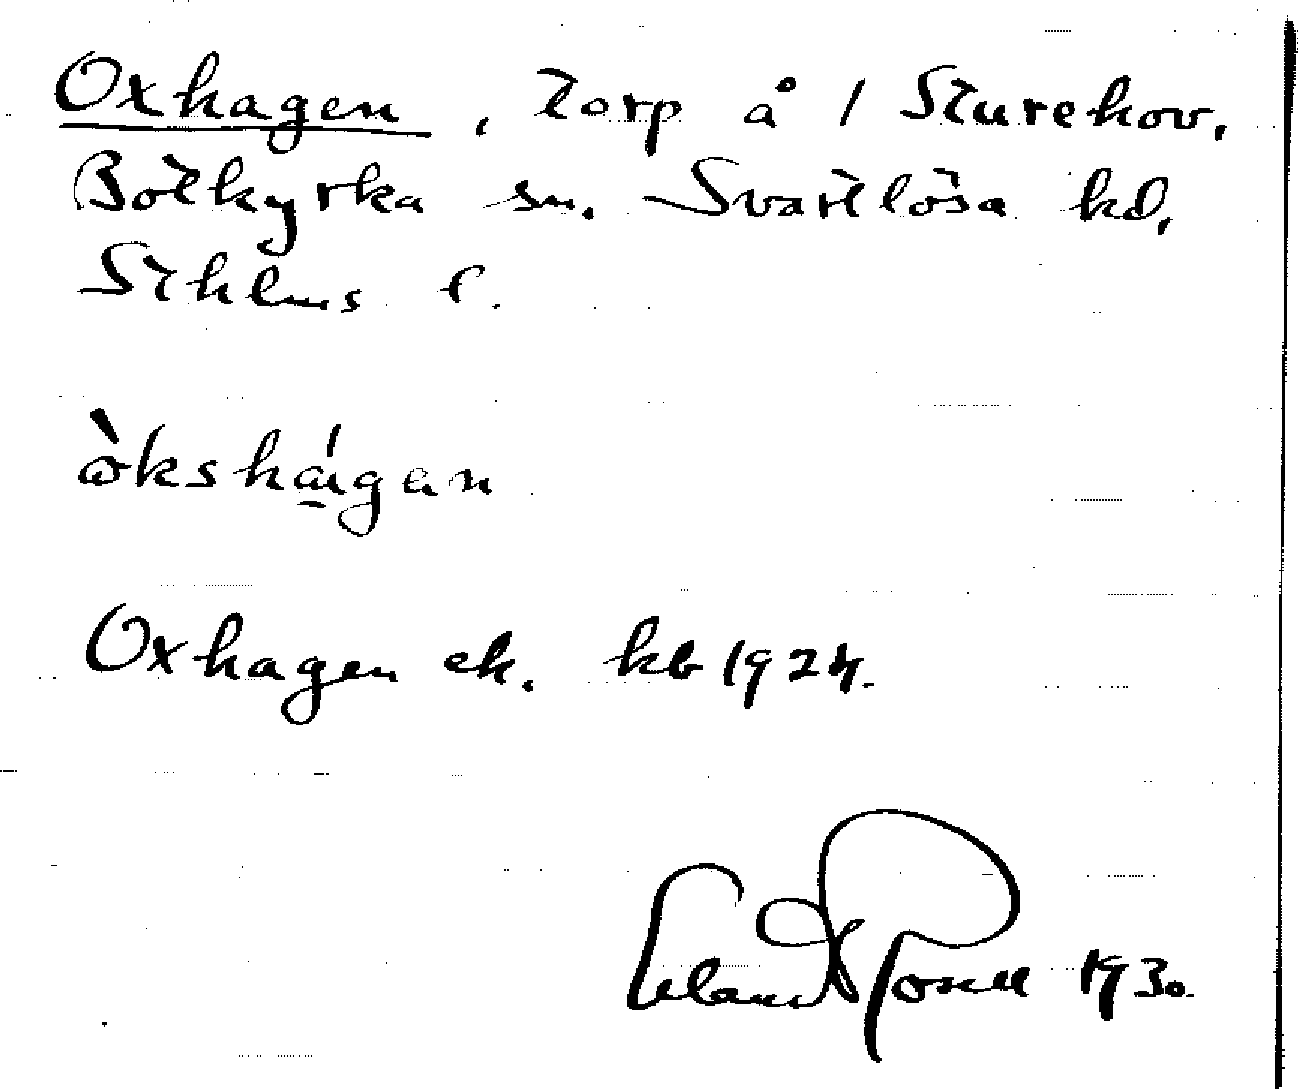 Oxhagen, torp å / Sturehov,
Botkyrka sn. Svartlösa hd,
Sthlms l.
Oxhagen ek. kb 1924.
Erland Rosell 1930.